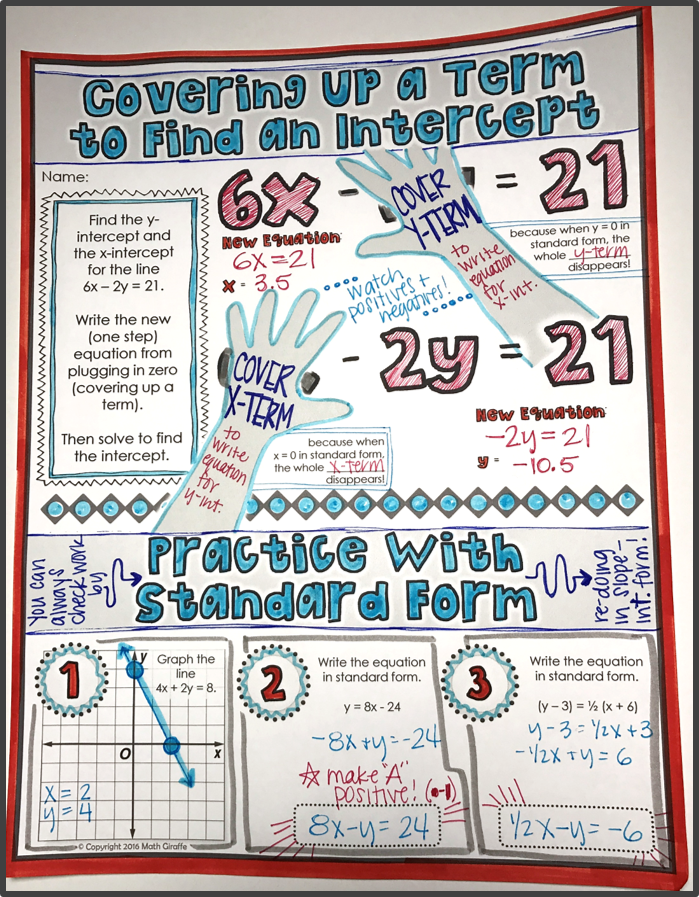 Covering Up a Term
to Find an Intercept
Name:
Find the y-
intercept and
the x-intercept
for the line
6x – 2y = 21.
Write the new
(one step)
equation from
plugging in zero
(covering up a
term).
Then solve to find
the intercept.
6x - = 21
COVER
Y-TERM
to
write
equation
for
x-int.
New Equation:
6x = 21
x = 3.5
because when y = 0 in
standard form, the
whole y-term
disappears!
watch
positives +
negatives!
- 2y = 21
COVER
X-TERM
to
write
equation
for
y-int.
because when
x = 0 in standard form,
the whole x-term
disappears!
New Equation:
-2y = 21
y = -10.5
you can
always
check work
by
Practice With
Standard Form
re-doing
in slope-
int. form!
1
Graph the
line
4x + 2y = 8.
y
O
x
x = 2
y = 4
© Copyright 2016 Math Giraffe
2
Write the equation
in standard form.
y = 8x - 24
-8x+y=-24
make "A"
positive! (•-1)
8x-y= 24
3
Write the equation
in standard form.
(y – 3) = ½ (x + 6)
y-3=1/2x+3
-1/2x+y= 6
1/2x-y= -6